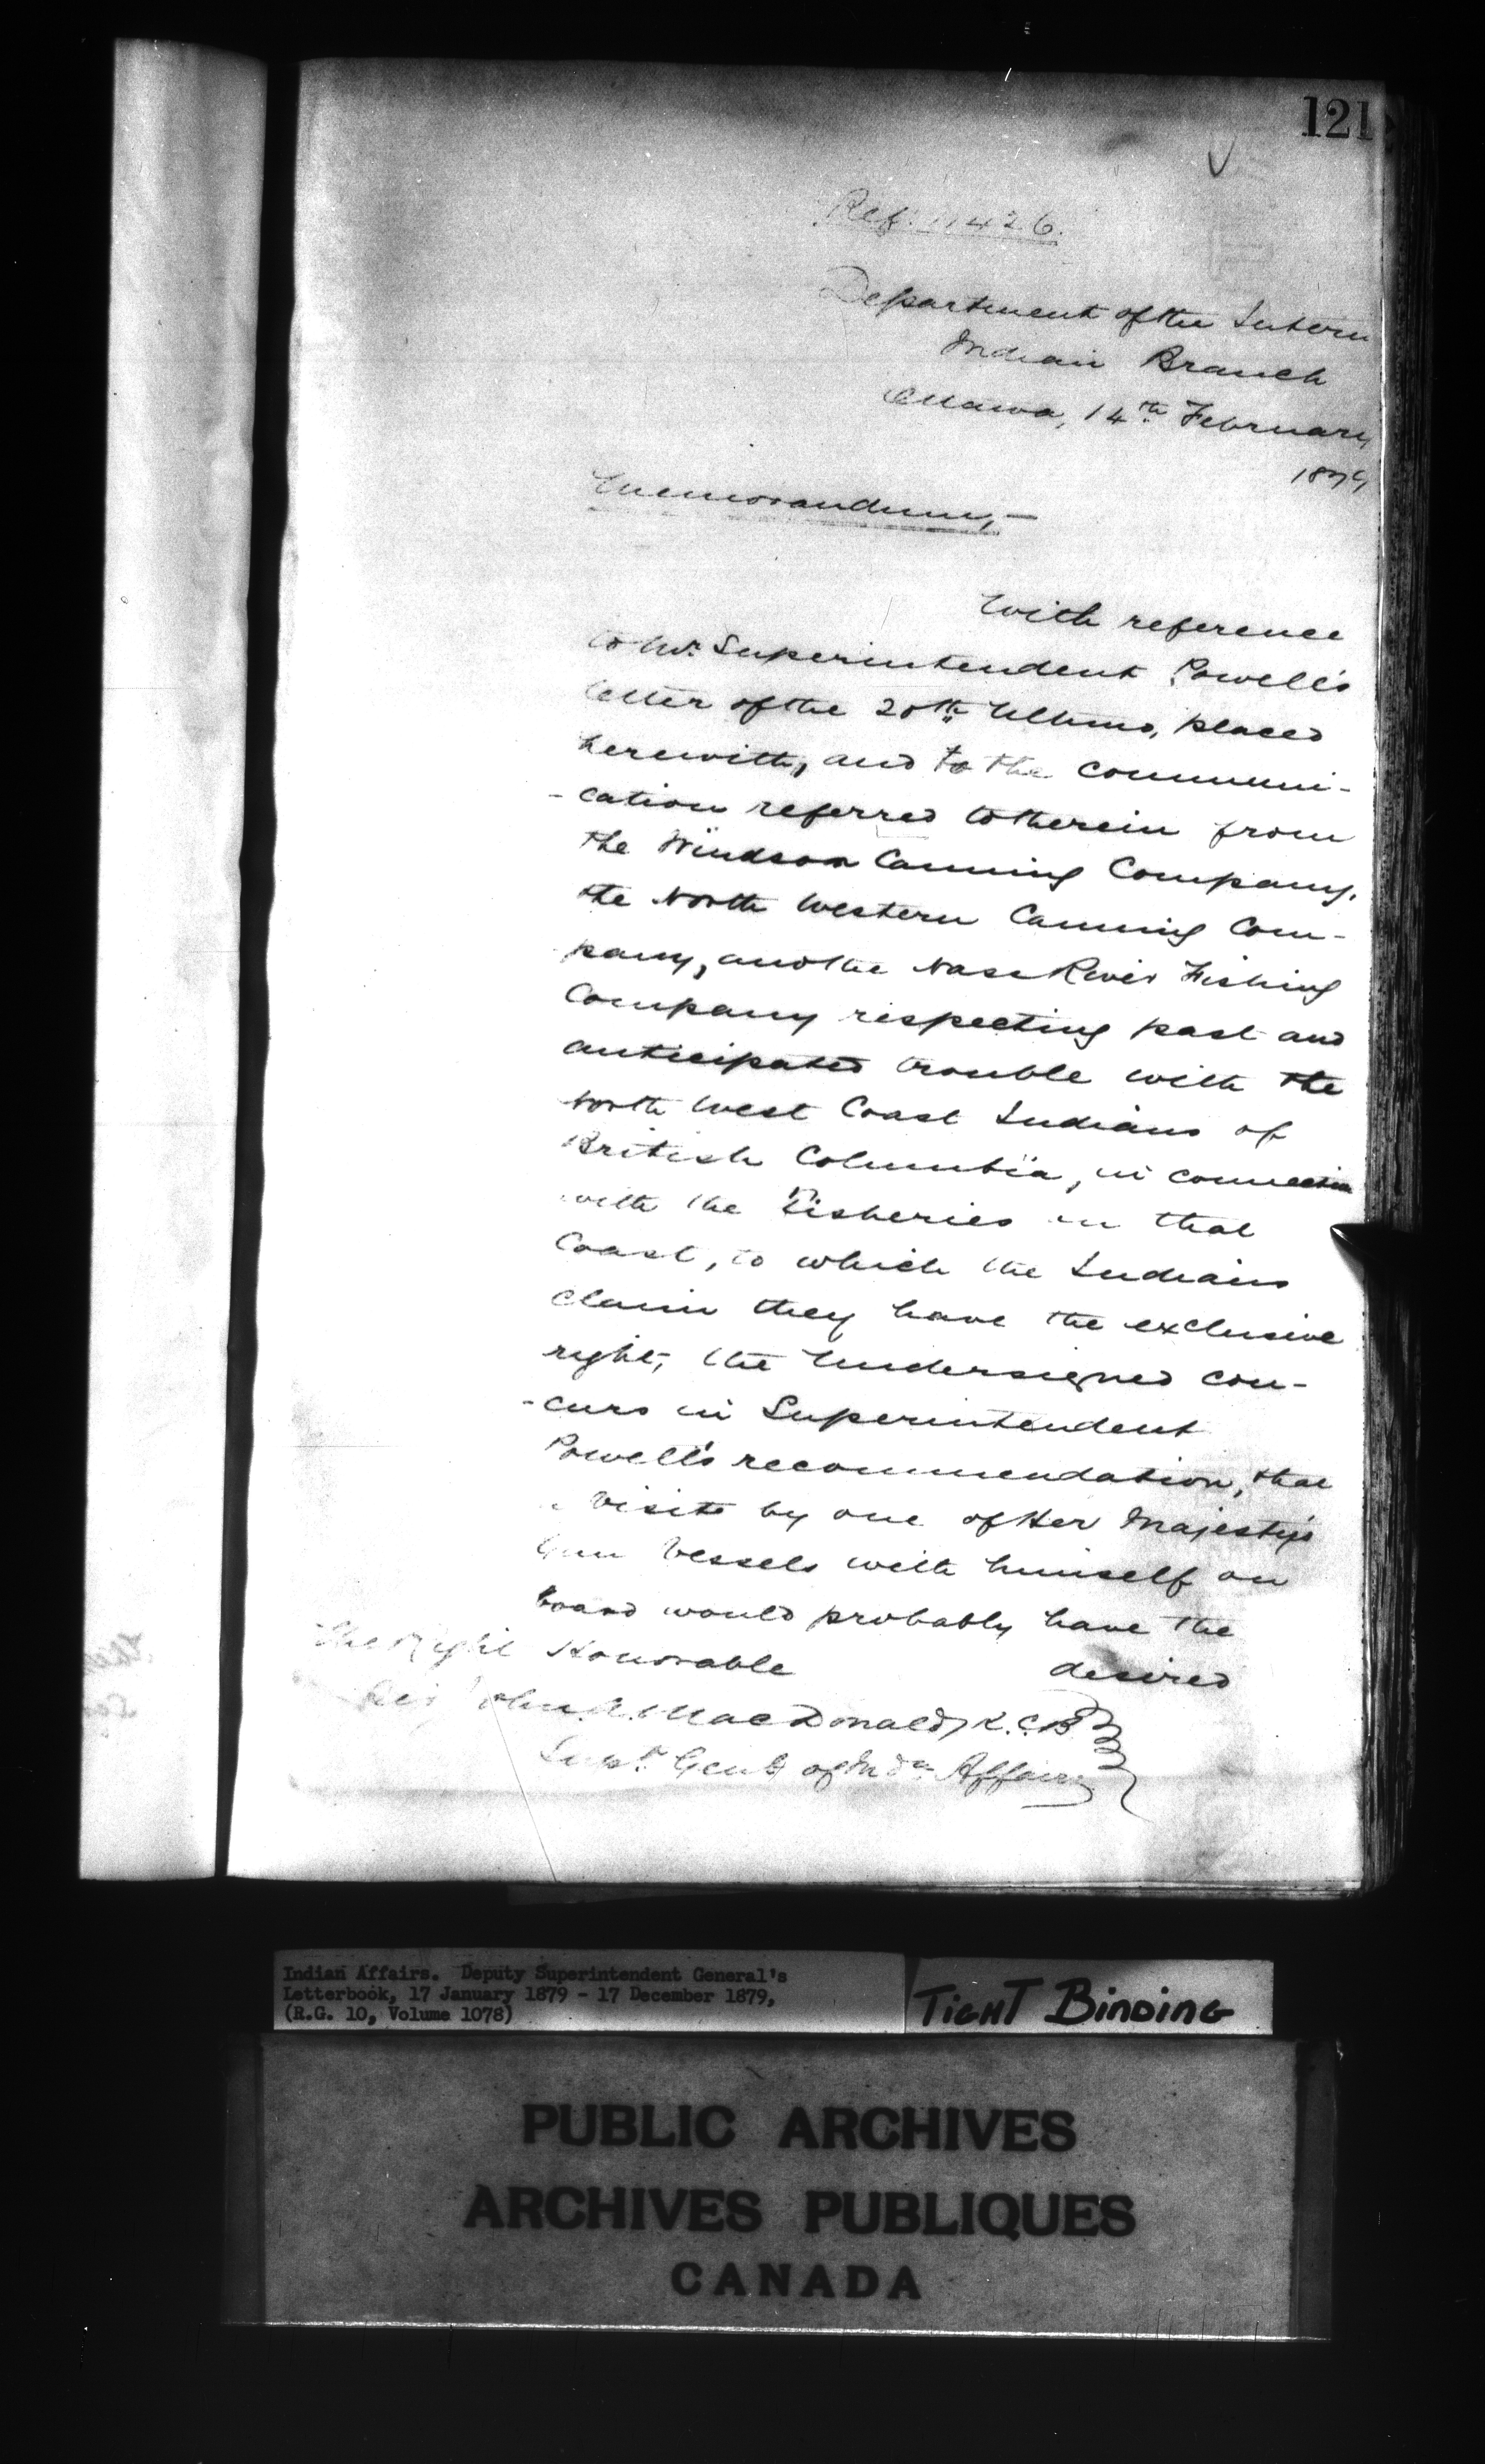 121
Ref. 11426.
Department of the Interi
Indian Branch
Ottawa, 14th February
1879
Memorandum,-
With reference
to Mr. Superintendent Powell's
letter of the 20th Ultimo, placed
herewith, and to the communi-
-cation referred to therein from
the Windsor Canning Company,
the North Western Canning Com-
pany, and the Nass River Fishing
Company respecting past and
anticipated trouble with the
North West Coast Indians of
British Columbia, in connection
with the Fisheries on that
Coast, to which the Indians
claim they have the exclusive
right, the Undersigned con-
-curs in Superintendent
Powell's recommendation, that
a visit by one of Her Majesty's
Gun Vessels with himself on
board would probably have the
desired
The Right Honorable
Sir John A. MacDonald, K.C.B.
Supt. Genl. of Indn. Affairs
Indian Affairs. Deputy Superintendent General's
Letterbook, 17 January 1879 - 17 December 1879,
(R.G. 10, Volume 1078)
TIGHT BINDING
PUBLIC ARCHIVES
ARCHIVES PUBLIQUES
CANADA